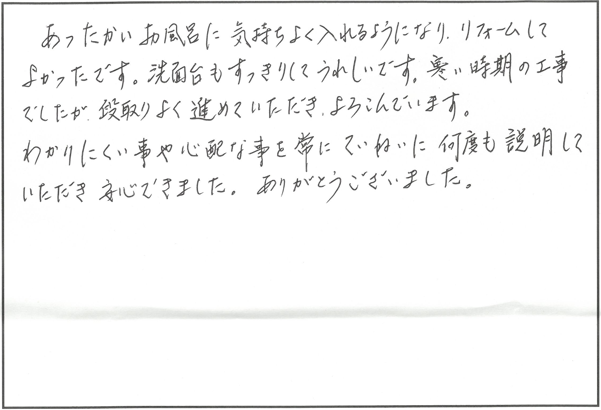 あったかいお風呂に気持ちよく入れるようになり、リフォームして
よかったです。洗面台もすっきりしてうれしいです。寒い時期の工事
でしたが、段取りよく進めていただき、よろこんでいます。
わかりにくい事や心配な事を常にていねいに何度も説明して
いただき安心できました。ありがとうございました。